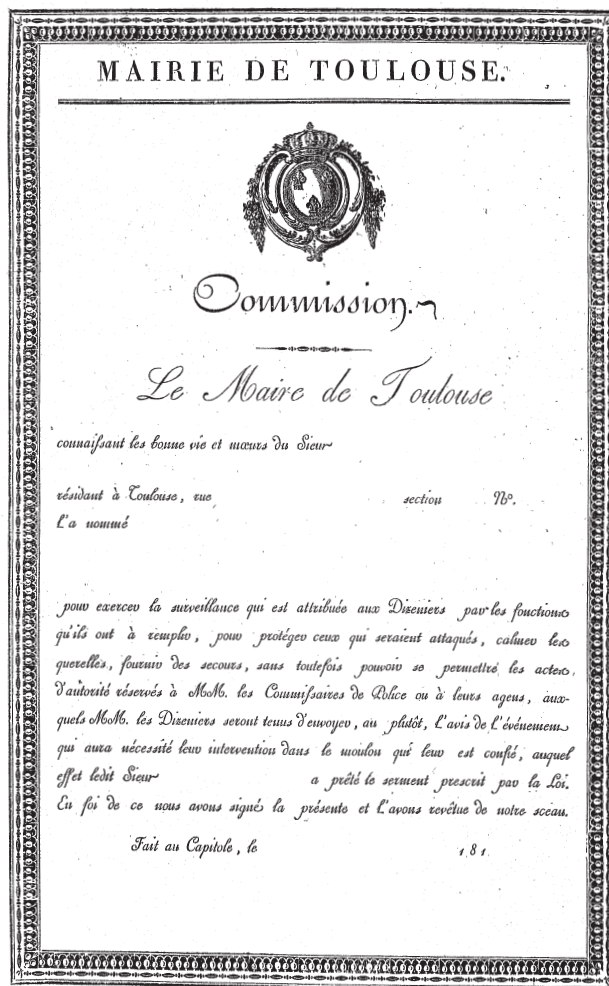 MAIRIE DE TOULOUSE.
Commission.
Le Maire de Toulouse
connaissant les bonne vie et mœurs du Sieur
résidant à Toulouse, rue section N.º
l'a nommé
pour exercer la surveillance qui est attribuée aux Dizeniers par les fonctions
qu'ils ont à remplir, pour protéger ceux qui seraient attaqués, calmer les
querelles, fournir des secours, sans toutefois pouvoir se permettre les actes
d'autorité réservés à MM. les Commissaires de Police ou à leurs agens, aux-
quels MM. les Dizeniers seront tenus d'envoyer, au plutôt, l'avis de l'événement
qui aura nécessité leur intervention dans le moulon qui leur est confié, auquel
effet ledit Sieur a prêté le serment prescrit par la Loi.
En foi de ce nous avons signé la présente et l'avons revêtue de notre sceau.
Fait au Capitole, le 181